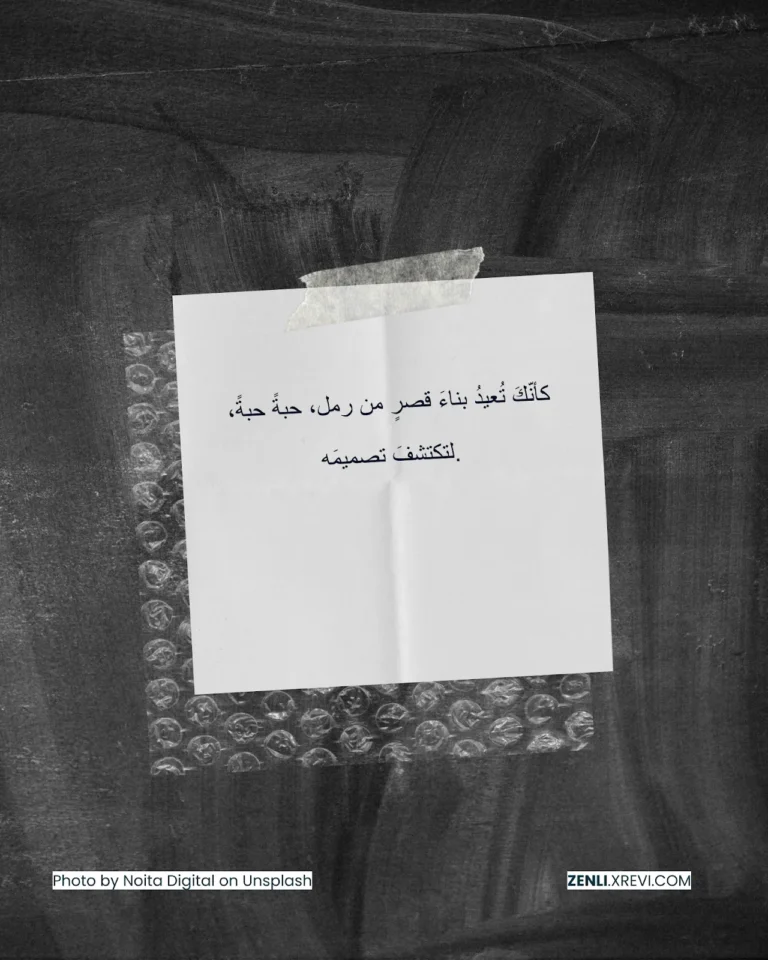 كأنّكَ تُعيدُ بناءَ قصرٍ من رمل، حبةً حبةً،
.لتكتشفَ تصميمَه
Photo by Noita Digital on Unsplash
ZENLI.XREVI.COM